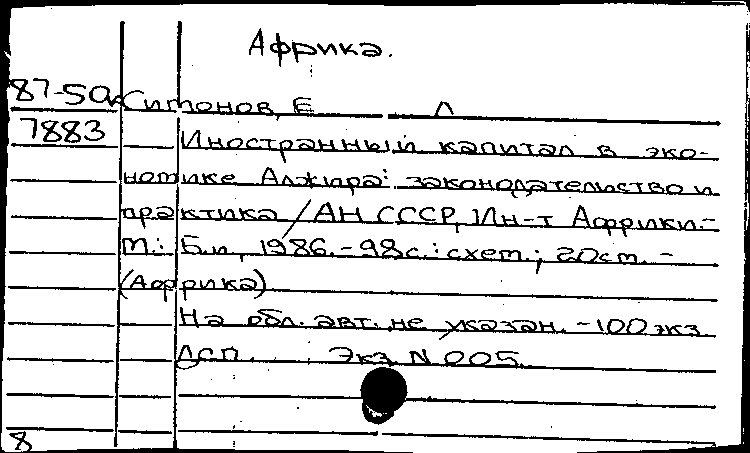 Африка.
87-5а Симонов, Е Л
7883 Иностранный капитал в эко-
номике Алжира: законодательство и
практика / АН СССР, Ин-т Африки.-
М.: Б.и, 1986.-98с.: схем.; 20см. -
(Африка)
На обл. авт. не указан. -100 экз
ДСП. Экз N 005.
8